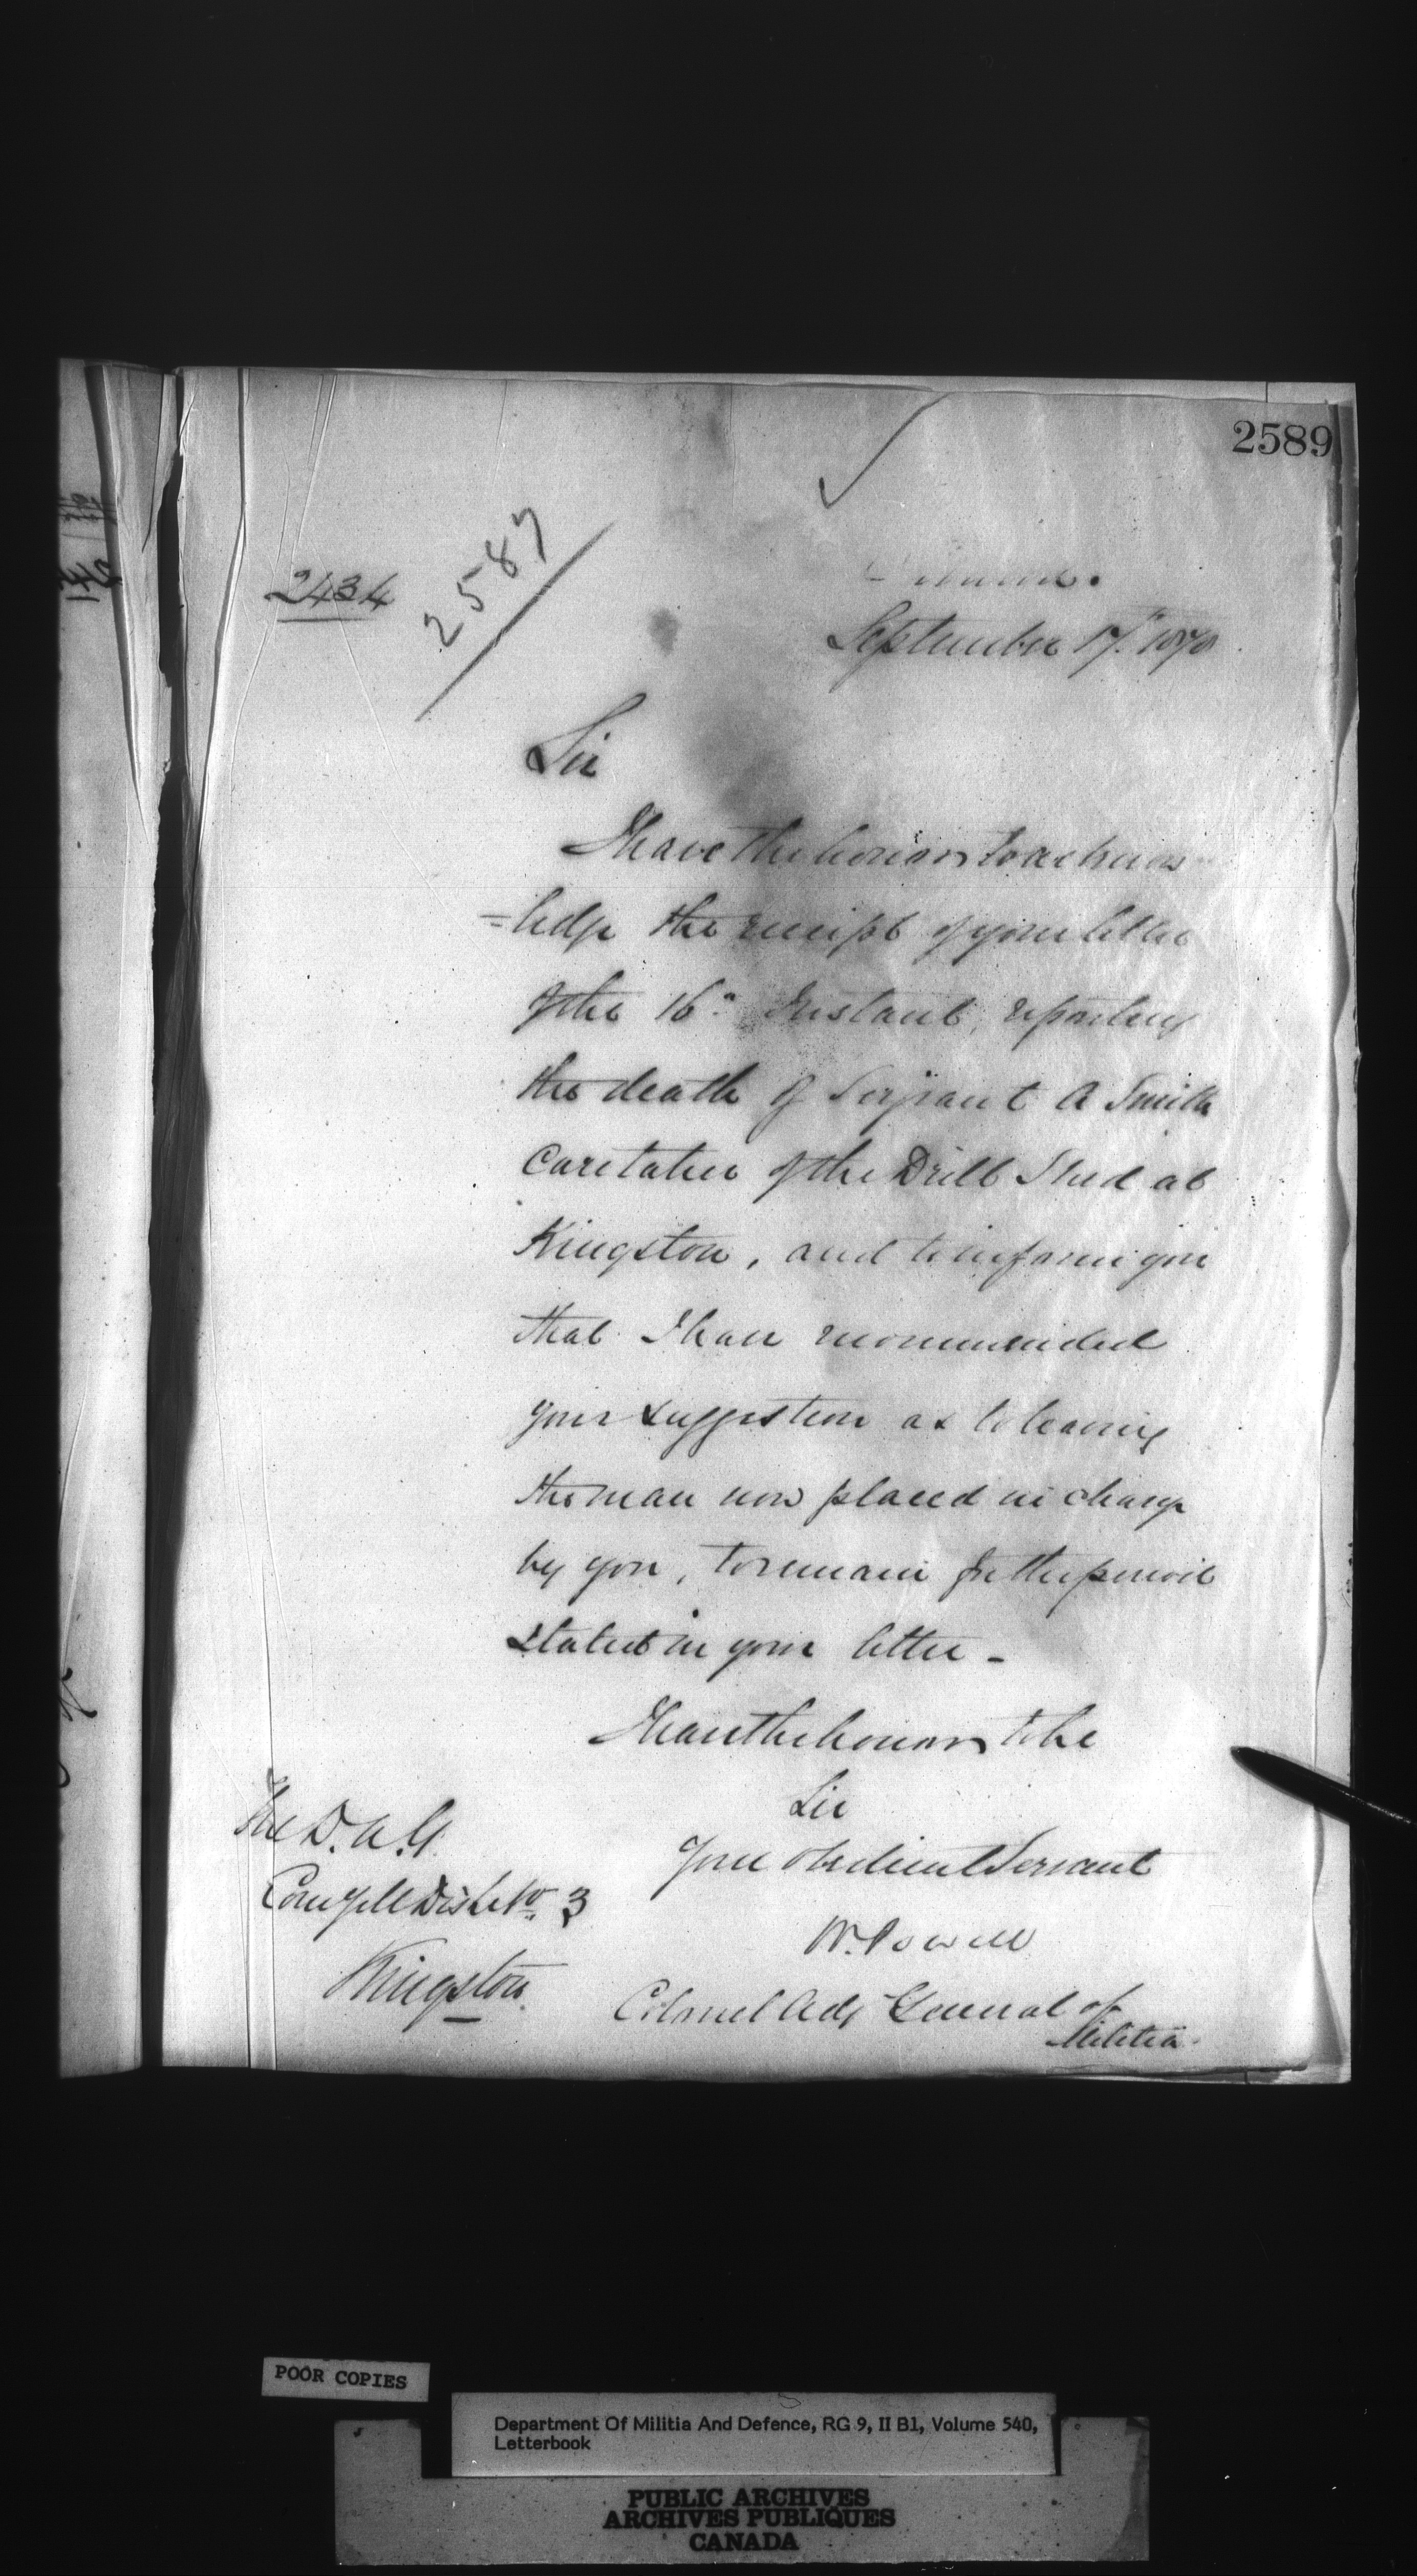 2589
2434
2587
September 17. 1870
Sir
I have the honor to acknow
=ledge the receipt of your letter
of the 16th Instant, reporting
the death of Serjeant A Smith
Caretaker of the Drill Shed at
Kingston, and to inform you
that I have recommended
your suggestion as to leaving
the man now placed in charge
by you, to remain for the period
stated in your letter -
I have the honor to be
Sir
Your obedient Servant
W. Powell
Colonel Adj General of
Militia
The D. A. G.
Comg Mil Dist No. 3
Kingston
POOR COPIES
Department Of Militia And Defence, RG 9, II B1, Volume 540,
Letterbook
PUBLIC ARCHIVES
ARCHIVES PUBLIQUES
CANADA